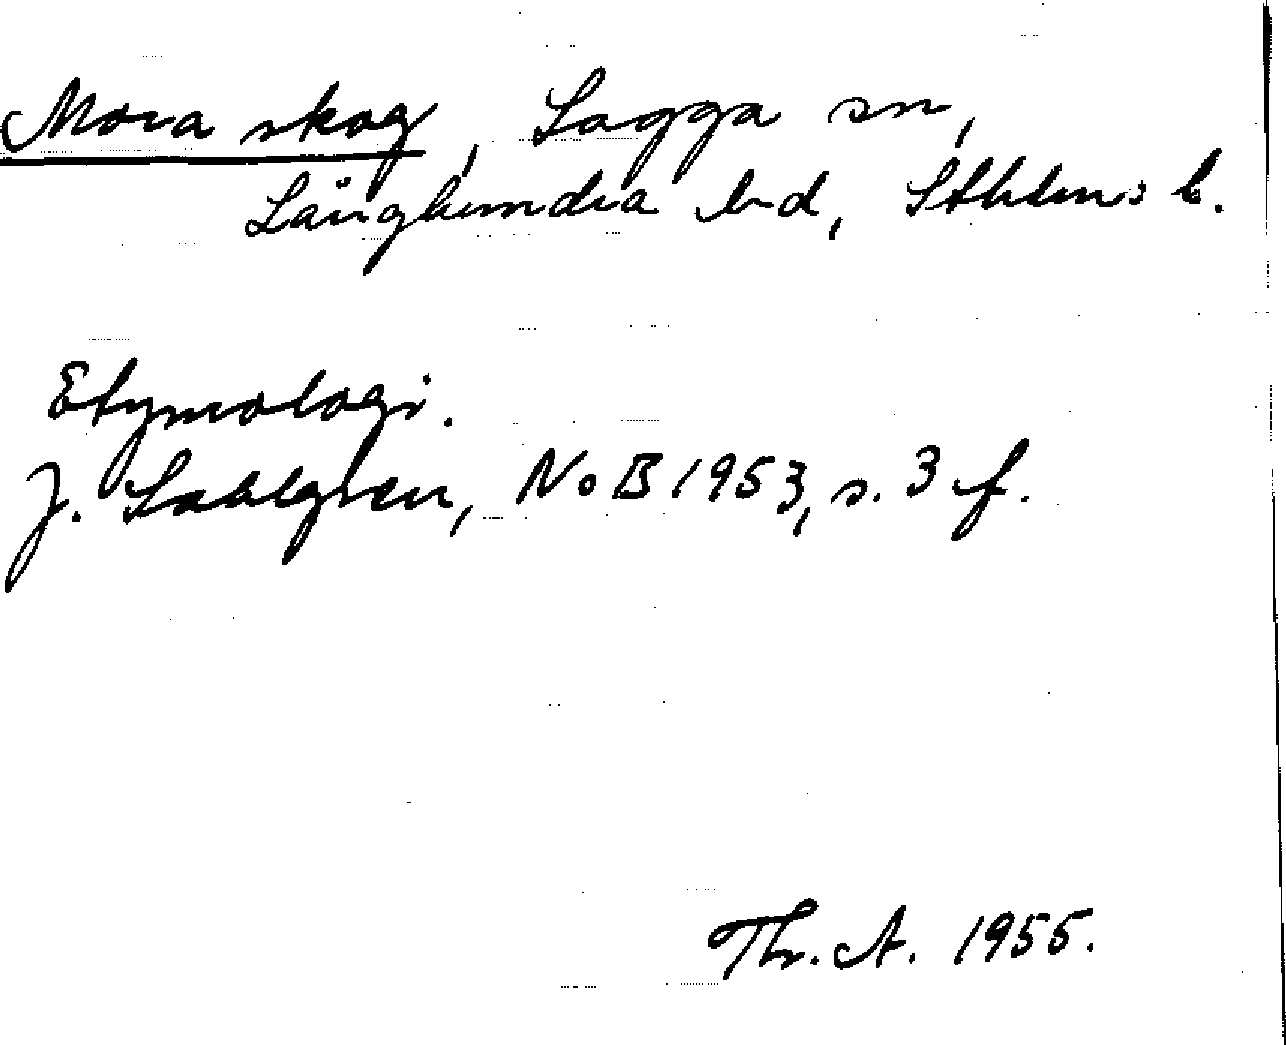 Mora skog, Lagga sn,
Långhundra hd, Sthlms l.
Etymologi.
J. Sahlgren, NoB 1953, s. 3 f.
Th. A. 1955.